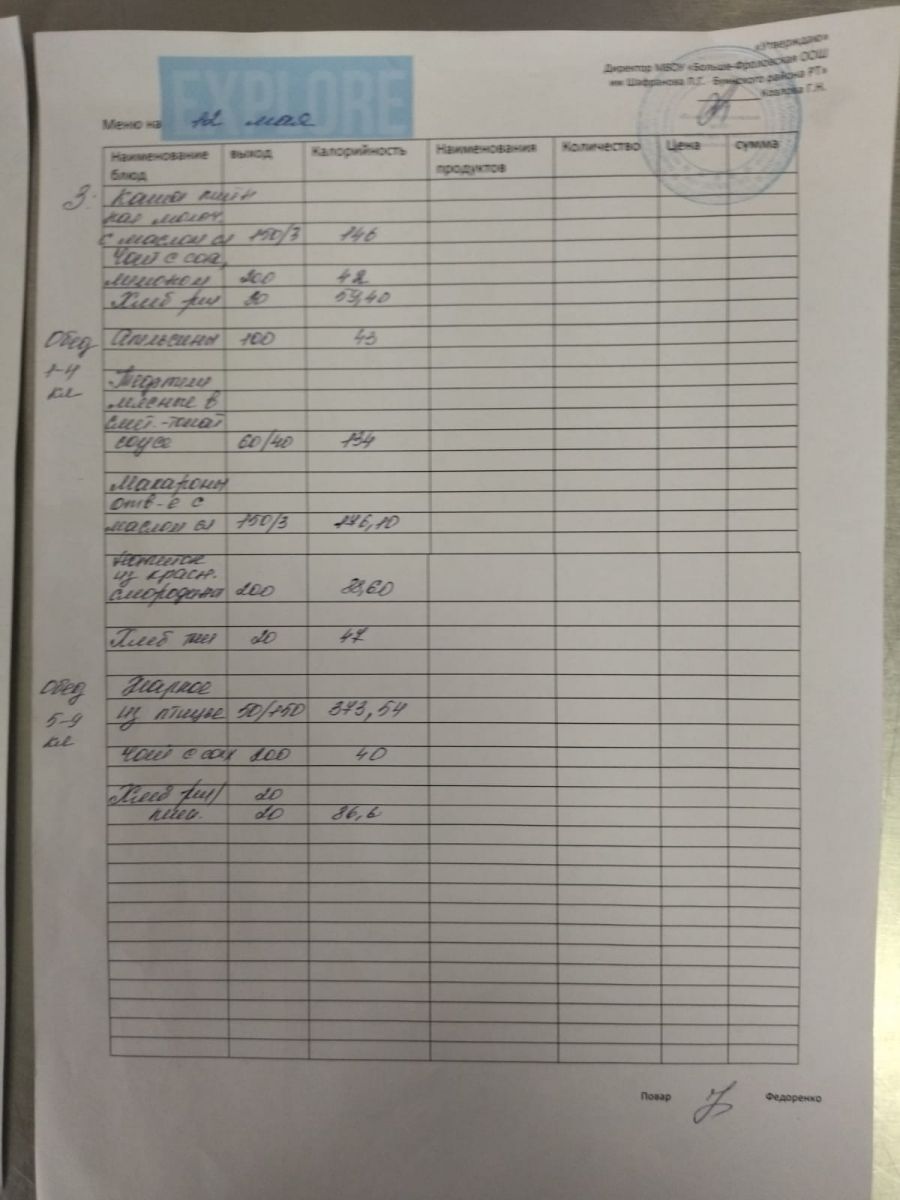 «Утверждаю»
Директор МБОУ «Больше-Фроловская ООШ
им Шафранова П.Г. Буинского района РТ»
Козлова Г.Н.
EXPLORE
Меню на 12 мая
Наименование блюд выход Калорийность Наименования продуктов Количество Цена сумма
З: Каша пшён
ная молоч.
с маслом сл 150/3 146
Чай с сах,
лимоном 200 42
Хлеб рж 20 59,40
Обед Апельсины 100 43
1-4
кл Тефтели
мясные в
смет.-томат
соусе 60/40 134
Макароны
отв-е с
маслом сл 150/3 176,10
Напиток
из красн.
смородины 200
Хлеб пш 20 47
Обед Жаркое
5-9 из птицы 50/150 373,54
кл
Чай с сах 200 40
Хлеб рж/ 20
пшен. 20 86,6
Повар Федоренко